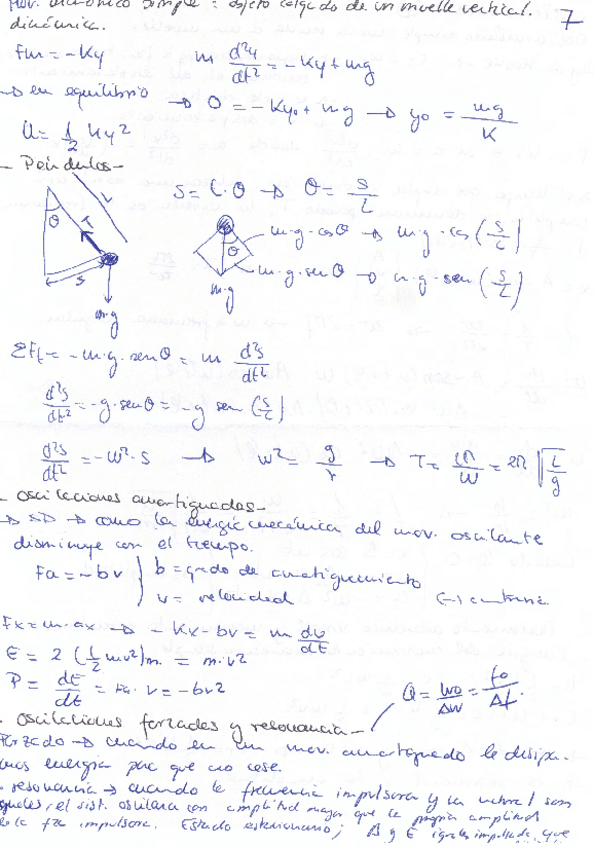 Mov. armónico simple: objeto colgado de un muelle vertical.
7
dinámica.
Fm = -Ky   m d²y/dt² = -Ky + mg
→ en equilibrio → 0 = -Ky₀ + mg → y₀ = mg/K
U = 1/2 Ky²
- Péndulos -
S = L·θ → θ = S/L
L
θ
T
S
m·g
m·g·cosθ → m·g·cos(S/L)
θ
m·g·senθ → m·g·sen(S/L)
m·g
ΣFt = -m·g·senθ = m d²s/dt²
d²s/dt² = -g·senθ = -g sen(S/L)
d²s/dt² = -W²·S → W² = g/r → T = 2π/W = 2π √(L/g)
- Oscilaciones amortiguadas -
como la energía mecánica del mov. oscilante
disminuye con el tiempo.
Fa = -bv } b = grado de amortiguamiento
v = velocidad   (-)
Fx = m·ax → -Kx - bv = m dv/dt
E = 2 (1/2 mv²)m = m·v²
P = dE/dt = Fa·v = -bv²   Q = W₀/ΔW = f₀/Δf.
. Oscilaciones forzadas y resonancia -
Forzado → cuando en un mov. amortiguado le
energía para que no cese.
. resonancia → cuando la frecuencia impulsora y la natural son
iguales, el sist. oscilara con amplitud mayor que la propia amplitud
de la fza impulsora. Estado estacionario; A y E que